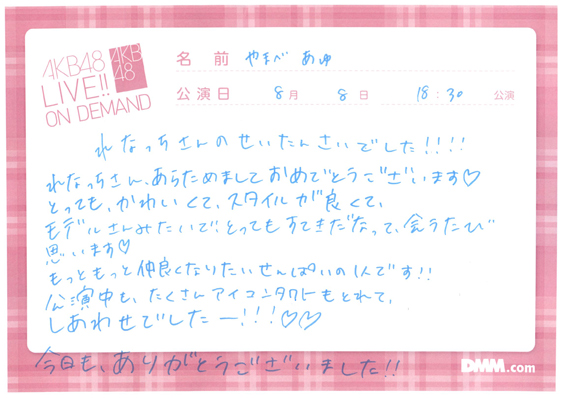 AKB48
LIVE!!
ON DEMAND
AKB
48
名前 やまべ あゆ
公演日 8月 8日 18:30 公演
れなっちさんのせいたんさいでした!!!!
れなっちさん、あらためましておめでとうございます♡
とっても、かわいくて、スタイルが良くて、
モデルさんみたいで!とってもすてきだなって、会うたび
思います♡
もっともっと仲良くなりたいせんぱいの1人です!!
公演中も、たくさんアイコンタクトもとれて、
しあわせでしたー!!!♡♡
今日も、ありがとうございました!!
DMM.com